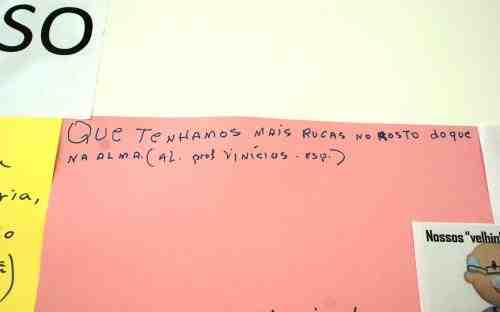 SO
QUE TENHAMOS MAIS RUGAS NO ROSTO do que
NA ALMA. (AL. prof VINÍCIUS - esp.)
ria,
Nossos "velhin